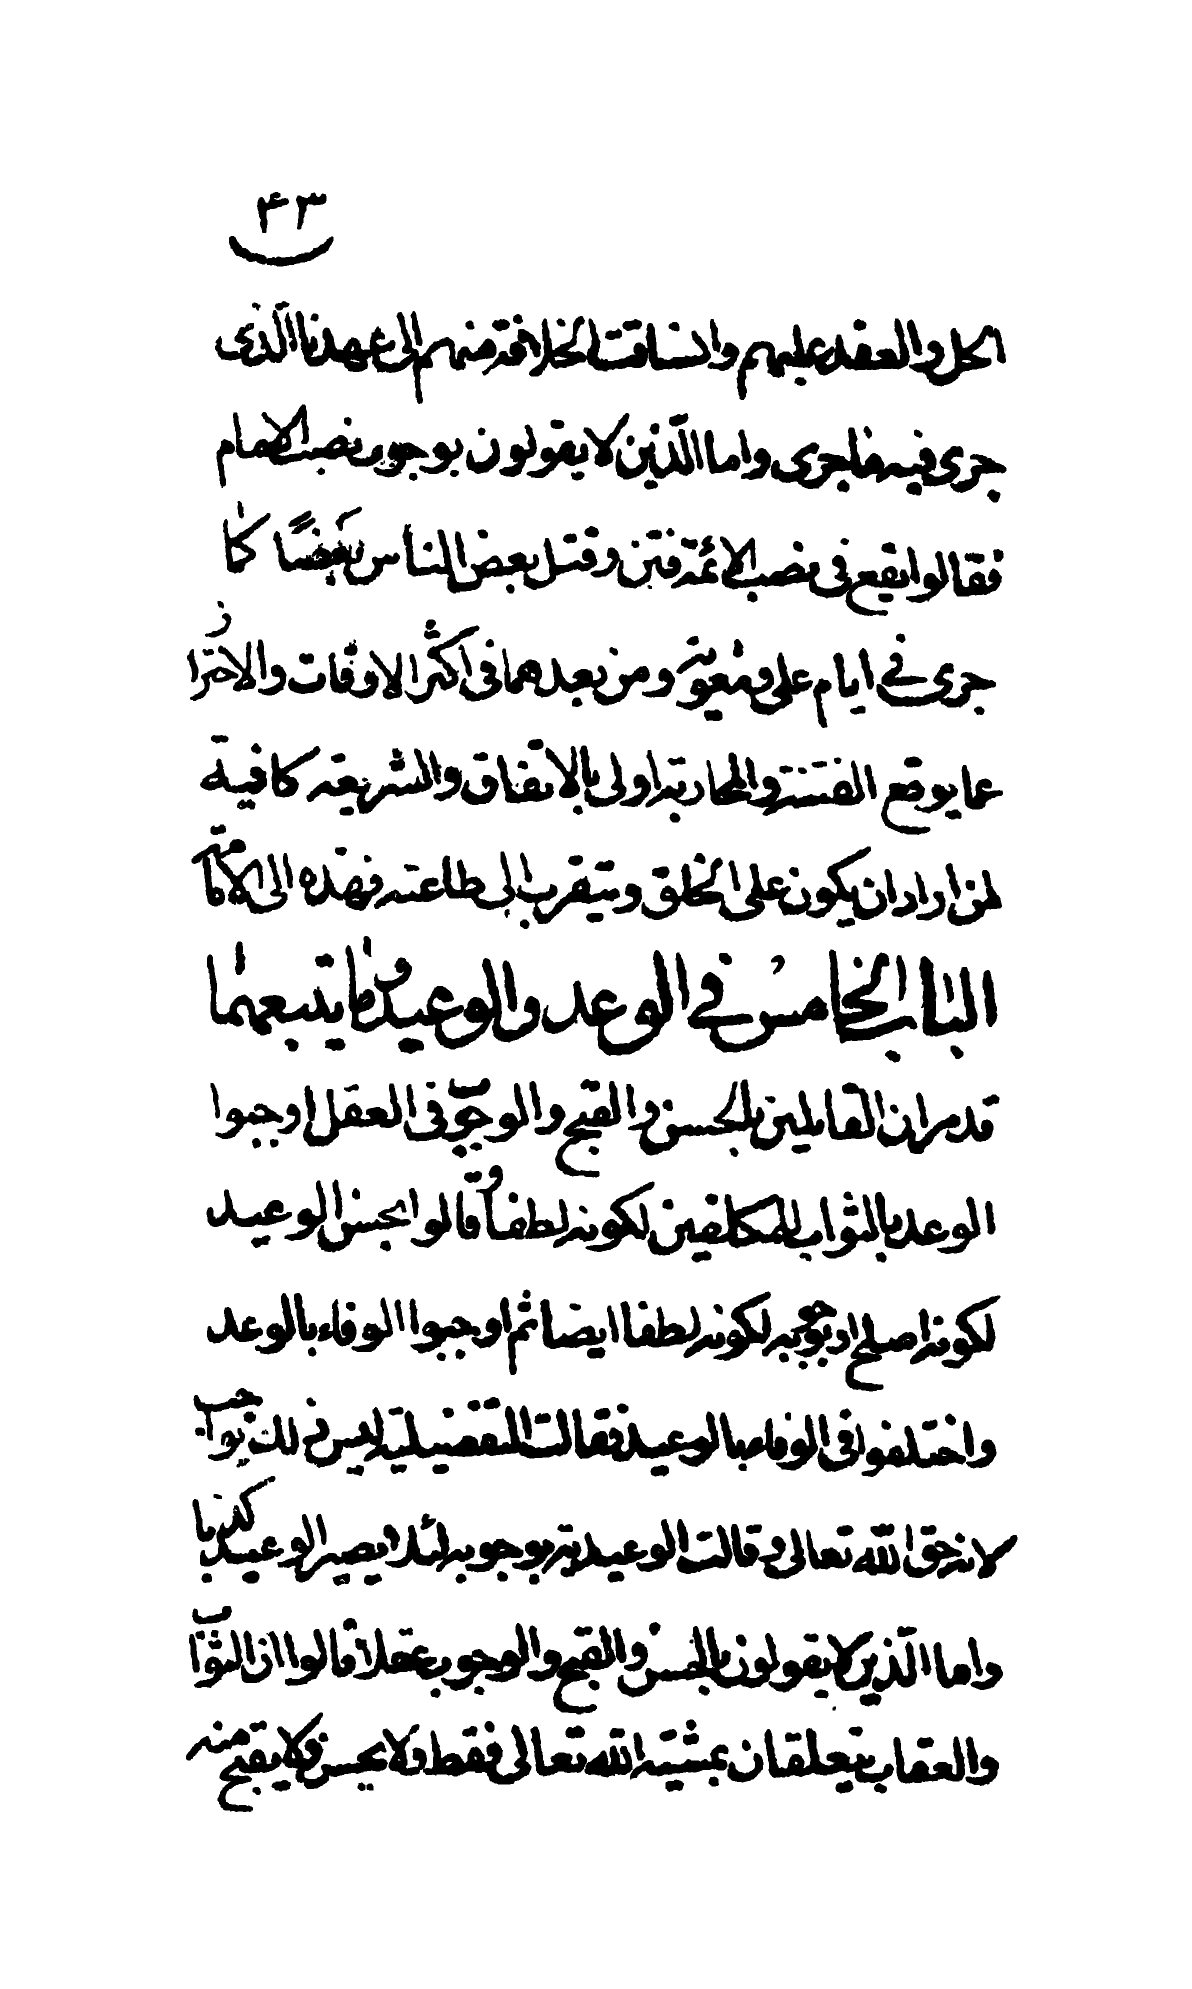 ۴۳
الحل والعقد عليهم وانساقت الخلافة منهم الى عهدنا الّذى
جرى فيه ما جرى واما الّذين لا يقولون بوجوب نصب الامام
فقالوا يقع فى نصب الائمّة فتن وقتل بعض الناس بعضًا كما
جرى فى ايام على ومعوية ومن بعدهما فى اكثر الاوقات والاحتراز
عما يوقع الفتنة والمحاربة اولى بالاتفاق والشريعة كافية
لمن اراد ان يكون على الخلق ويتقرب الى طاعته فهذه الى الامامة
الباب الخامس فى الوعد والوعيد وما يتبعهما
قد مر ان القايلين بالحسن والقبح والوجوب فى العقل اوجبوا
الوعد بالثواب للمكلفين لكونه لطفا وقالوا بحسن الوعيد
لكونه اصلح او بوجوبه لكونه لطفا ايضا ثم اوجبوا الوفاء بالوعد
واختلفوا فى الوفاء بالوعيد فقالت التفضيلية ليس ذلك بواجب
لانه حق اللّه تعالى وقالت الوعيدية بوجوبه لئلا يصير الوعيد كذبا
واما الّذين لا يقولون بالحسن والقبح والوجوب عقلا قالوا ان الثواب
والعقاب يتعلقان بمشيته اللّه تعالى فقط ولا يحسن ولا يقبح منه